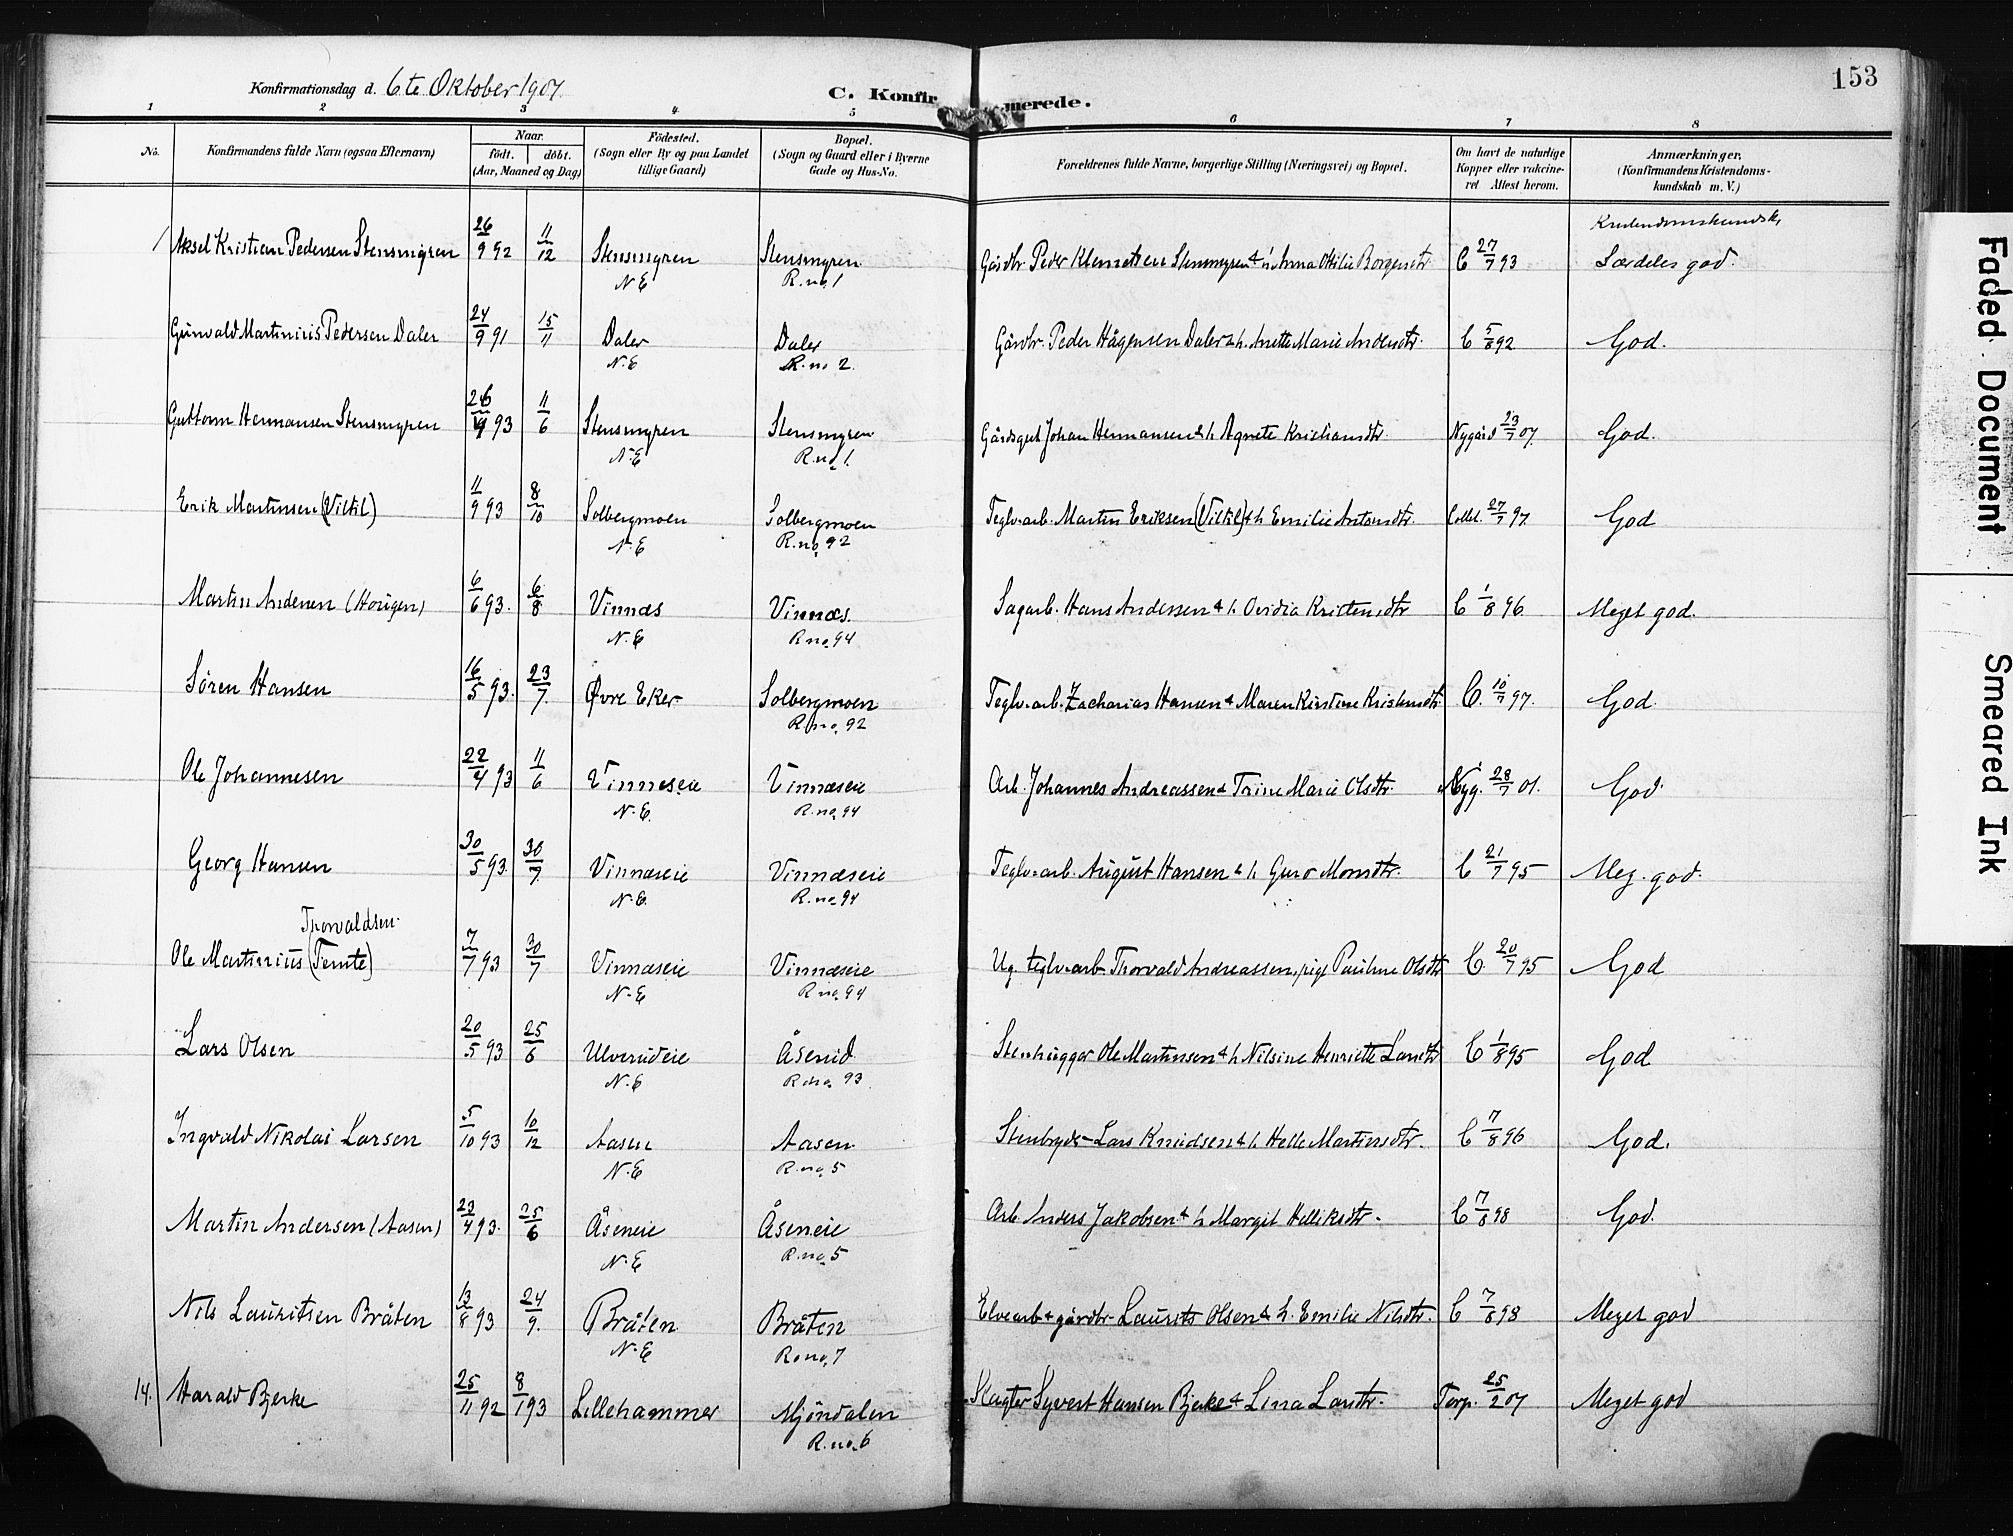 153
Konfirmationsdag d. 6te Oktober 1907.
C. Konfirmerede.
1 2 3 4 5 6 7 8
No.
Konfirmandens fulde Navn (ogsaa Efternavn)
Naar.
født. døbt.
(Aar, Maaned og Dag)
Fødested.
(Sogn eller By og paa Landet
tillige Gaard)
Bopæl.
(Sogn og Gaard eller i Byerne
Gade og Hus-No.
Forældrenes fulde Navne, borgerlige Stilling (Næringsvei) og Bopæl.
Om havt de naturlige
Kopper eller vakcine-
ret Attest herom.
Anmærkninger,
(Konfirmandens Kristendoms-
kundskab m. V.)
1 Aksel Kristian Pedersen Stensmyren 26/9 92 11/12 Stensmyren Stensmyren Gårdbr. Peder Klemetsen Stensmyren & h. Anna Otilie Borgersdtr. C 27/7 93 Særdeles god.
N E R. no. 1
Gunvald Martinius Pedersen Daler 24/9 91 15/11 Daler Daler Gårdbr. Peder Hågensen Daler & h. Anette Marie Andersdtr. C 5/8 92 God.
N. E R. no 2.
Guttorm Hermansen Stensmyren 93 11/6 Stensmyren Stensmyren Johan Hermansen & h Agnete Kristiansdtr. Nygård 23/7 07. God.
N. E R. no. 1.
Erik Martinsen (Viltil) 11/9 93 8/10 Solbergmoen Solbergmoen Teglv.arb. Martin Eriksen (Viltil) & h Emilie Antonsdtr. 27/7 97 God
N. E R. no. 92
Martin Andersen (Horgen) 6/6 93. 6/8 Vinnæs Vinnæs. Sagarb. Hans Andersen & h. Ovidia Kristensdtr C 1/8 96. Meget god.
N. E R no. 94
Søren Hansen 16/5 93. 23/7. Øvre Eker Solbergmoen Teglv.arb. Zacharias Hansen & Maren Kirstine Kristensdtr C. 10/7 97. God.
R. no. 92
Ole Johannesen 22/4 93 11/6 Vinneseie Vinnæseie Arb. Johannes Andreassen & Trine Marie Olsdtr. Nyg. 28/7 01. God.
N. E. R. no. 94
Georg Hansen 30/5 93. 30/7. Vinnæseie Vinnæseie Teglv.arb. August Hansen & h. Guro Monsdtr. C 21/7 95 Meg. god.
N. E. R. no. 94
Thorvaldsen.
Ole Martinius (Temte) 7/7 93 30/7 Vinnæseie Vinnæseie Ug. teglv.arb. Thorvald Andreassen, pige Pauline Olsdtr C. 20/7 95 God
N. E R no. 94
Lars Olsen 20/5 93 25/6 Ulverudeie Åserud. Stenhugger Ole Martinsen & h. Nilsine Henriette Larsdtr C 1/8 95 God
N. E R no. 93.
Ingvald Nikolai Larsen 5/10 93 10/12 Aasen Aasen. Stenbryder Lars Knudsen & h. Helle Martinsdtr. C 7/8 96 God.
N. E R. no. 5
Martin Andersen (Aasen) 23/4 93. 25/6 Åseneie Åseneie Arb Anders Jakobsen & h Margit Helliksdtr. C 7/8 98 God.
N. E R. no. 5
Nils Lauritsen Bråten 13/8 93 24/9. Bråten Bråten Elvearb & gårdbr. Laurits Olsen & h. Emilie Nilsdtr. C 7/8 98 Meget god
N. E R. no. 7
14. Harald Bjerke 25/11 92 8/1 93 Lillehammer Mjøndalen Syvert Hansen Bjerke & Lina Larsdtr. Torp. 25/2 07 Meget god
R. no. 6
Faded Document
Smeared Ink